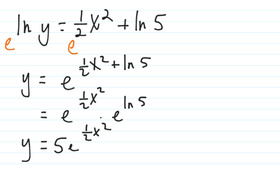 e^ln y = e^½x² + ln 5
y = e^(½x² + ln 5)
= e^(½x²) e^(ln 5)
y = 5e^(½x²)